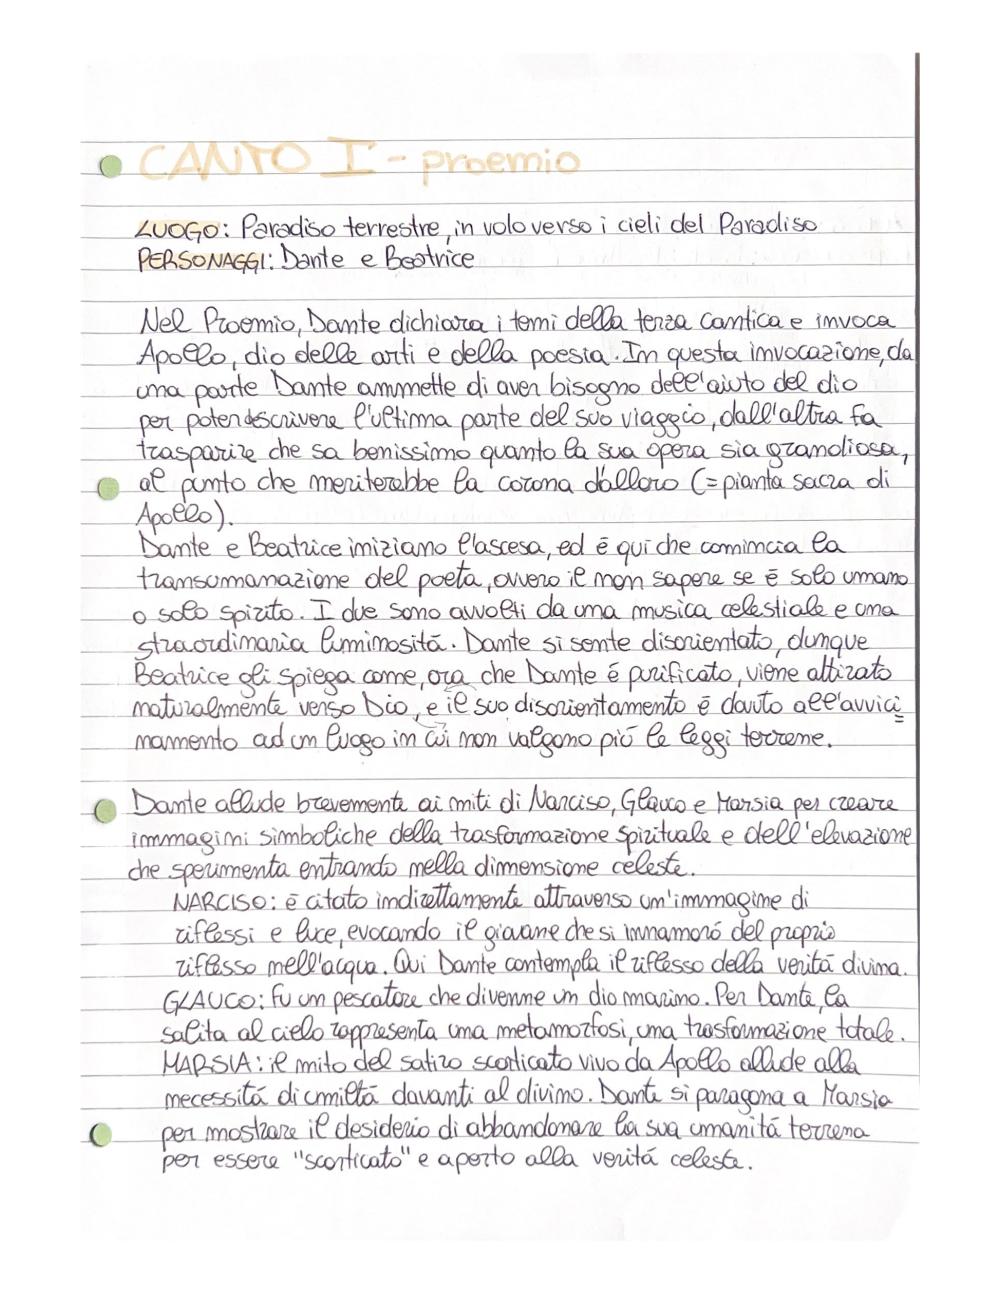 CANTO I - proemio
LUOGO: Paradiso terrestre, in volo verso i cieli del Paradiso
PERSONAGGI: Dante e Beatrice
Nel Proemio, Dante dichiara i temi della terza cantica e invoca
Apollo, dio delle arti e della poesia. In questa invocazione, da
una parte Dante ammette di aver bisogno dell'aiuto del dio
per poter descrivere l'ultima parte del suo viaggio, dall'altra fa
trasparire che sa benissimo quanto la sua opera sia grandiosa,
al punto che meriterebbe la corona d'alloro (= pianta sacra di
Apollo).
Dante e Beatrice iniziano l'ascesa, ed è qui che comincia la
transumanazione del poeta, ovvero il non sapere se è solo umano
o solo spirito. I due sono avvolti da una musica celestiale e una
straordinaria luminosità. Dante si sente disorientato, dunque
Beatrice gli spiega come, ora che Dante é purificato, viene attirato
naturalmente verso Dio, e il suo disorientamento è dovuto all'avvici=
namento ad un luogo in cui non valgono più le leggi terrene.
Dante allude brevemente ai miti di Narciso, Glauco e Marsia per creare
immagini simboliche della trasformazione spirituale e dell'elevazione
che sperimenta entrando nella dimensione celeste.
NARCISO: è citato indirettamente attraverso un'immagine di
riflessi e luce, evocando il giovane che si innamorò del proprio
riflesso nell'acqua. Qui Dante contempla il riflesso della verità divina.
GLAUCO: fu un pescatore che divenne un dio marino. Per Dante, la
salita al cielo rappresenta una metamorfosi, una trasformazione totale.
MARSIA: il mito del satiro scorticato vivo da Apollo allude alla
necessità di umiltà davanti al divino. Dante si paragona a Marsia
per mostrare il desiderio di abbandonare la sua umanità terrena
per essere "scorticato" e aperto alla verità celeste.